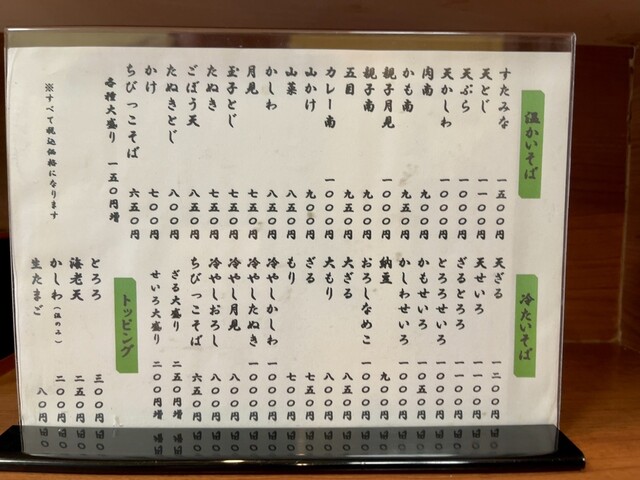 温かいそば
すたみな 一五〇〇円
天とじ 一一〇〇円
天ぷら 一〇〇〇円
天かしわ 一〇〇〇円
肉南 九〇〇円
かも南 九五〇円
親子月見 一〇〇〇円
親子南 九〇〇円
五目 九五〇円
カレー南 一〇〇〇円
山かけ 九〇〇円
山菜 八五〇円
かしわ 八五〇円
月見 七五〇円
玉子とじ 七五〇円
たぬき 七五〇円
ごぼう天 八五〇円
たぬきとじ 八〇〇円
かけ 七〇〇円
ちびっこそば 六五〇円
各種大盛り 一五〇円増
※すべて税込価格になります
冷たいそば
天ざる 一二〇〇円
天せいろ 一一〇〇円
ざるとろろ 一一〇〇円
とろろせいろ 一〇〇〇円
かもせいろ 一〇五〇円
かしわせいろ 一〇〇〇円
納豆 九〇〇円
おろしなめこ 一〇〇〇円
大ざる 八五〇円
大もり 八〇〇円
ざる 七五〇円
もり 七〇〇円
冷やしかしわ 一〇〇〇円
冷やしたぬき 一〇〇〇円
冷やし月見 八〇〇円
冷やしおろし 八〇〇円
ちびっこそば 六五〇円
ざる大盛り 二五〇円増
せいろ大盛り 二〇〇円増
トッピング
とろろ 三〇〇円
海老天 二五〇円
かしわ(温のみ) 二〇〇円
生たまご 八〇円